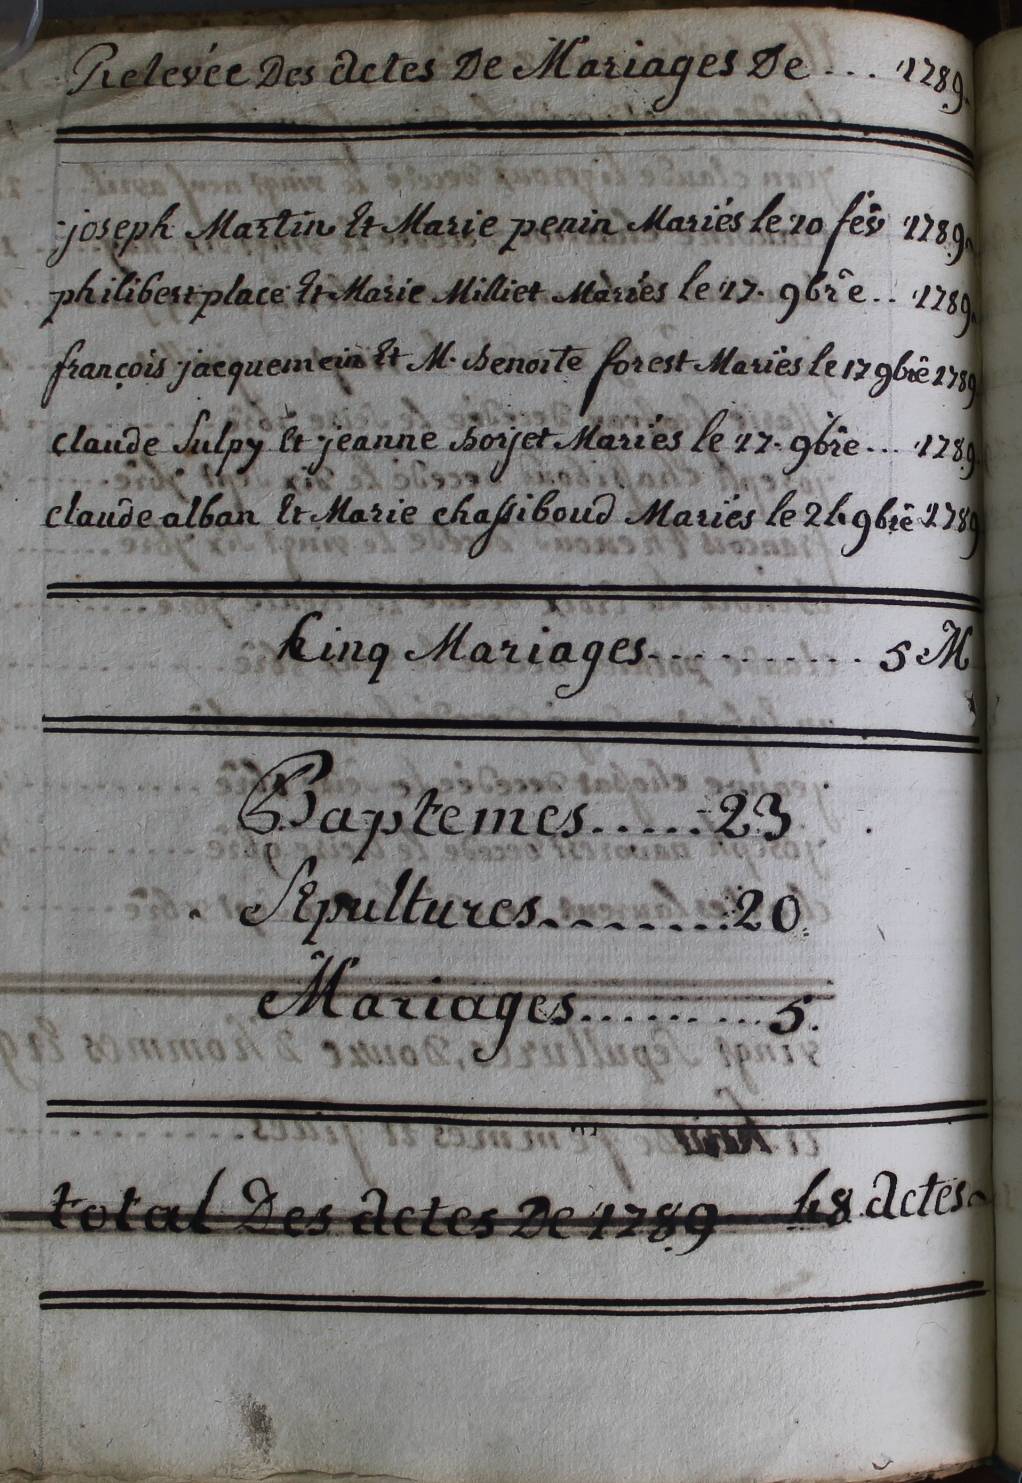 Relevée Des Actes De Mariages De ... 1789.
joseph Martin Et Marie penin Mariés le 10 fév 1789.
philibert place Et Marie Milliet Mariés le 17. 9bre .. 1789.
françois jacquemein Et M. Benoite forest Mariés le 17 9bre 1789
claude Sulpy Et jeanne borjet Mariés le 17. 9bre ... 1789
claude alban Et Marie chassiboud Mariés le 24 9bre 1789
Cinq Mariages........... 5 M
Baptemes......23
Sépultures........20.
Mariages.........5.
total Des Actes De 1789 48 actes